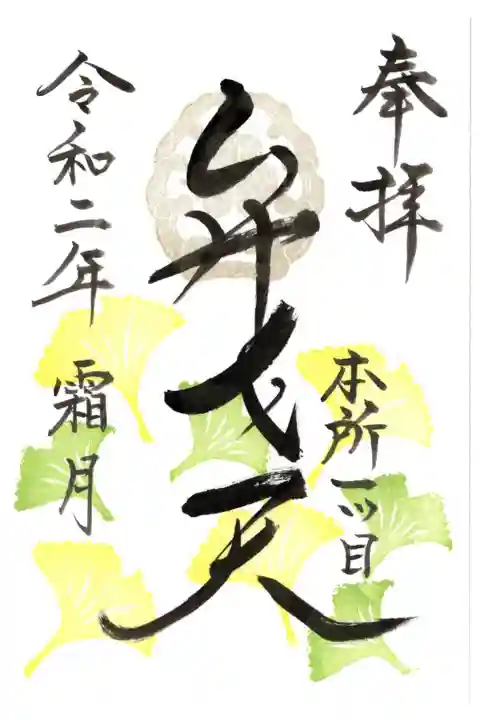 奉拝
本所一ツ目
弁天
令和二年 霜月